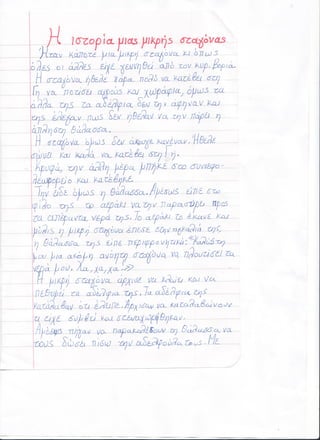 Η ΙΣΤΟΡΙΑ ΜΙΑΣ ΜΙΚΡΗΣ ΣΤΑΓΟΝΑΣ
Ήταν κάποτε μια μικρή σταγόνα κι όπως
όλες οι άλλες είχε γεννηθεί από τον κυρ. Βοριά.
Η σταγόνα ήθελε πάρα πολύ να κατέβει στη
Γη να ποτίσει αγρούς και χωράφια, όμως τα
άλλα της τα αδέλφια δεν την άφηναν και
της έλεγαν πως δεν ήθελαν να την πάρει η
άπληστη θάλασσα.
Η σταγόνα όμως δεν άκουγε κανέναν. Ήθελε
σώνει και καλά να κατέβει στη Γη.
Κρυφά, την άλλη μέρα μπήκε στο συννεφο-
λεωφορείο και κατέβηκε.
Την είδε όμως η θάλασσα. Αμέσως είπε στο
φίλο της το αεράκι να την παρασύρει προς
τα απέραντα νερά της. Το αεράκι το έκανε και
μόλις η μικρή σταγόνα έπεσε στην αγκαλιά της
η θάλασσα της είπε περιφρονητικά: «Καλώς τη
μου μια ακόμη ανόητη σταγόνα να πλουτίσει τα
νερά μου. Χα, χα, χα.»
Η μικρή σταγόνα άρχισε να κλαίει και να
τα αδέλφια της. Τα αδέλφια της
κατάλαβαν ότι έλειπε. Άρχισαν να καταλαβαίνουν
τι είχε συμβεί και στεναχωρήθηκαν.
Αμέσως πήγαν να παρακαλέσουν τη θάλασσα να
τους δώσει πίσω την αδελφούλα τους. Με